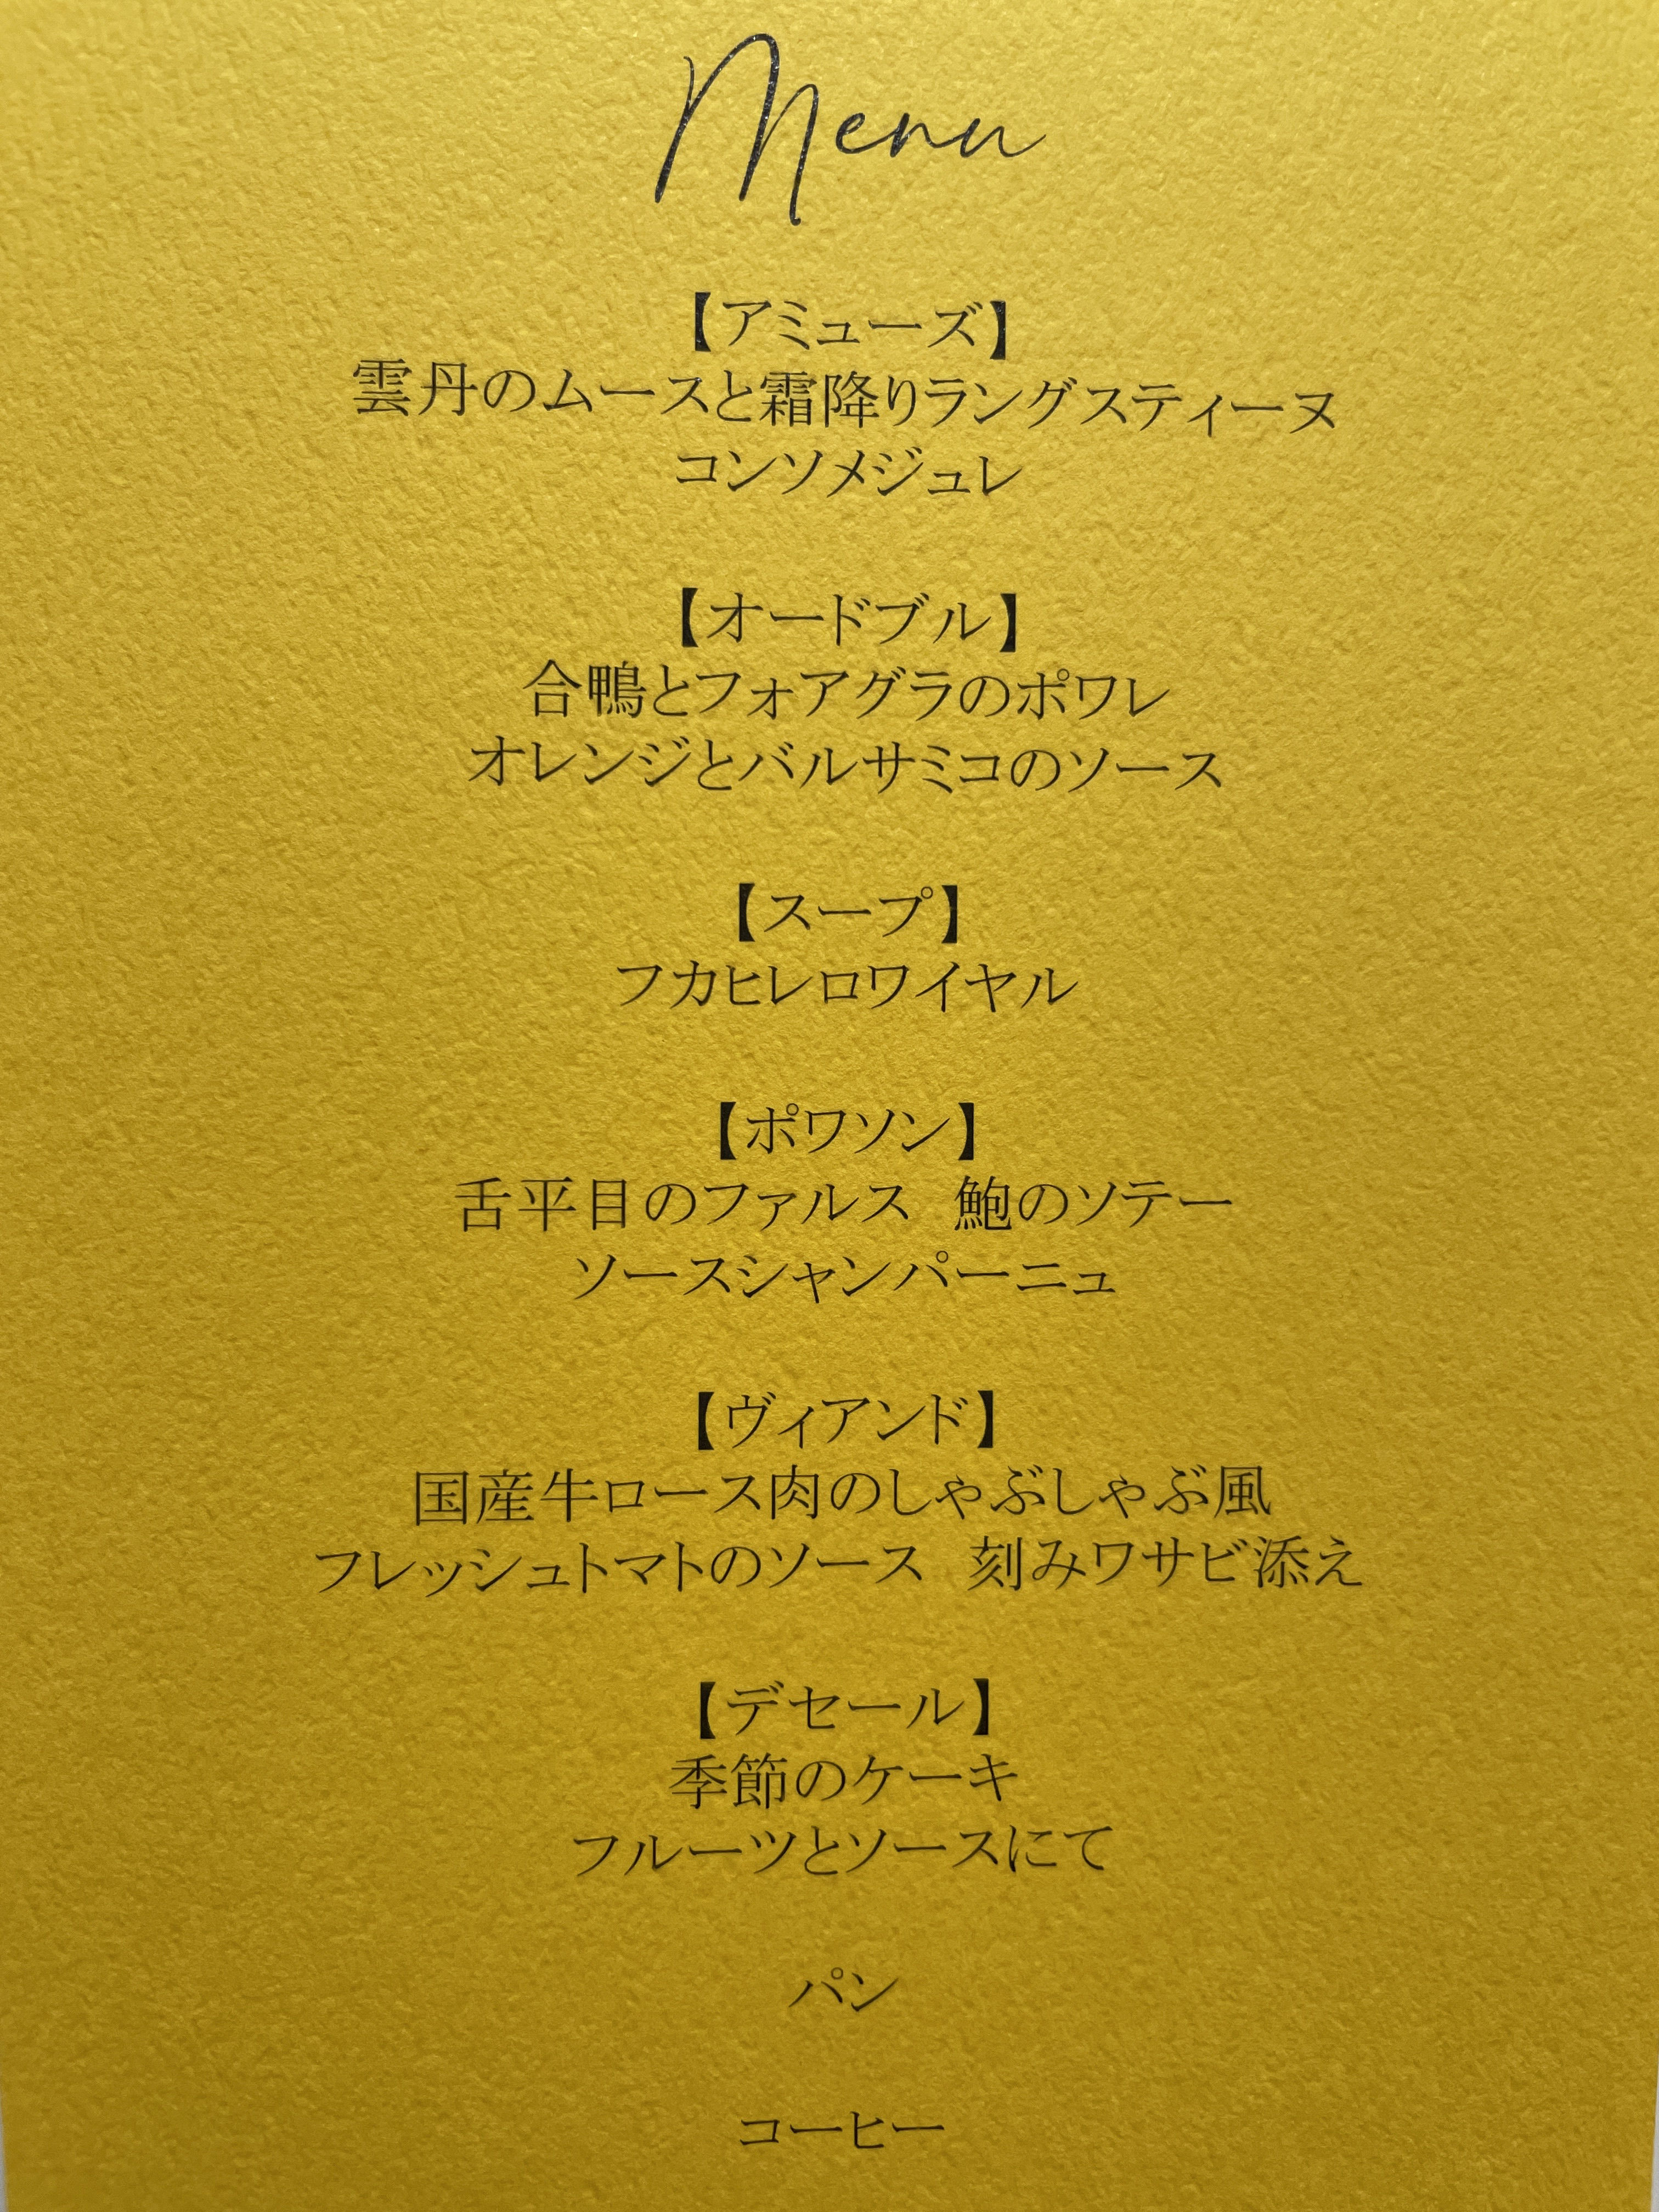 Menu
【アミューズ】
雲丹のムースと霜降りラングスティーヌ
コンソメジュレ
【オードブル】
合鴨とフォアグラのポワレ
オレンジとバルサミコのソース
【スープ】
フカヒレロワイヤル
【ポワソン】
舌平目のファルス　鮑のソテー
ソースシャンパーニュ
【ヴィアンド】
国産牛ロース肉のしゃぶしゃぶ風
フレッシュトマトのソース　刻みワサビ添え
【デセール】
季節のケーキ
フルーツとソースにて
パン
コーヒー